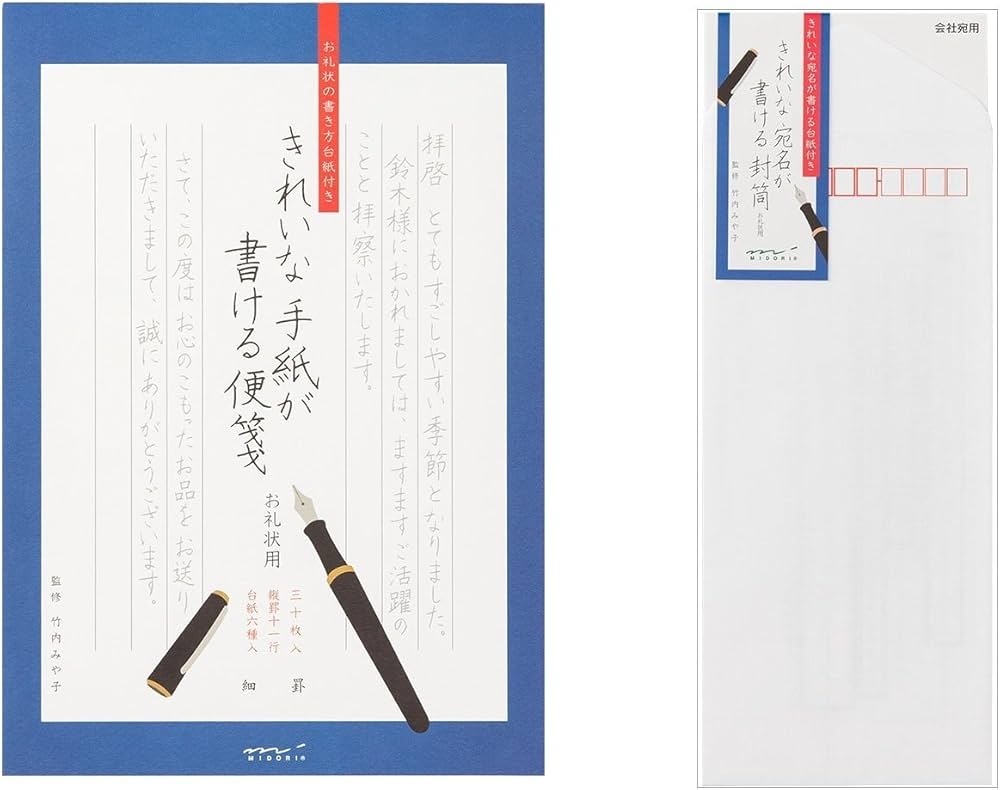 お礼状の書き方台紙付き
拝啓 とてもすごしやすい季節となりました。
鈴木様におかれましては、ますますご活躍の
ことと拝察いたします。
きれいな手紙が
書ける便箋
お礼状用
三十枚入
縦罫十一行
台紙六種入
細罫
さて、この度はお心のこもったお品をお送り
いただきまして、誠にありがとうございます。
監修 竹内みや子
MIDORI®
会社宛用
きれいな宛名が書ける台紙付き
きれいな宛名が
書ける封筒
お礼状用
監修 竹内みや子
MIDORI®